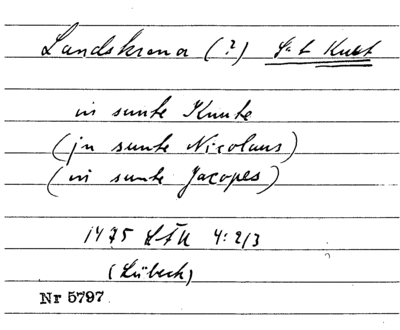 Landskrona (?) S:t Knut
in sunte Knute
(in sunte Nicolaus)
(in sunte Jacopes)
1475 LÄU 4:213
(Lübeck)
Nr 5797